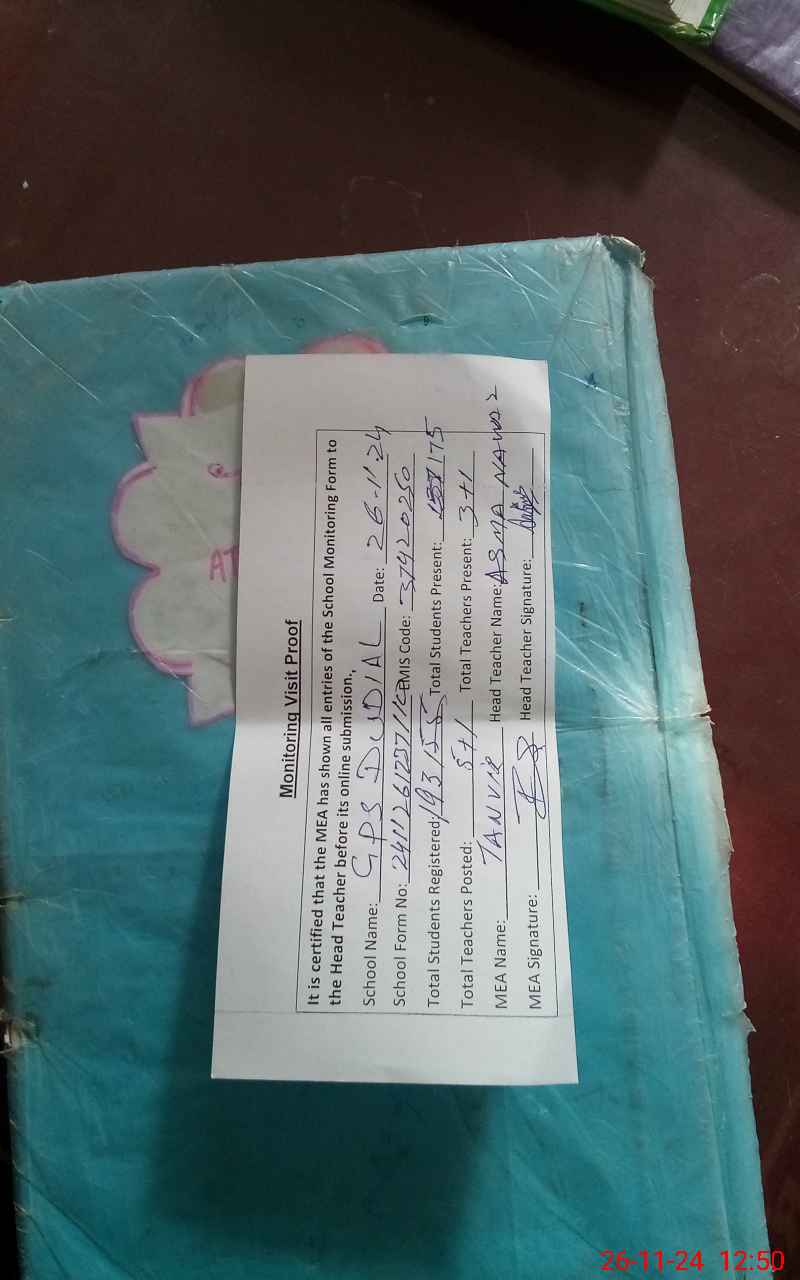 Monitoring Visit Proof
It is certified that the MEA has shown all entries of the School Monitoring Form to
the Head Teacher before its online submission.,
School Name: GPS DUDIAL Date: 26-11-24
School Form No: EMIS Code: 37420250
Total Students Registered: 193 Total Students Present: 175
Total Teachers Posted: 5+1 Total Teachers Present: 3+1
MEA Name: TANVIR Head Teacher Name: ASMA NAWAZ
MEA Signature: Head Teacher Signature:
26-11-24 12:50